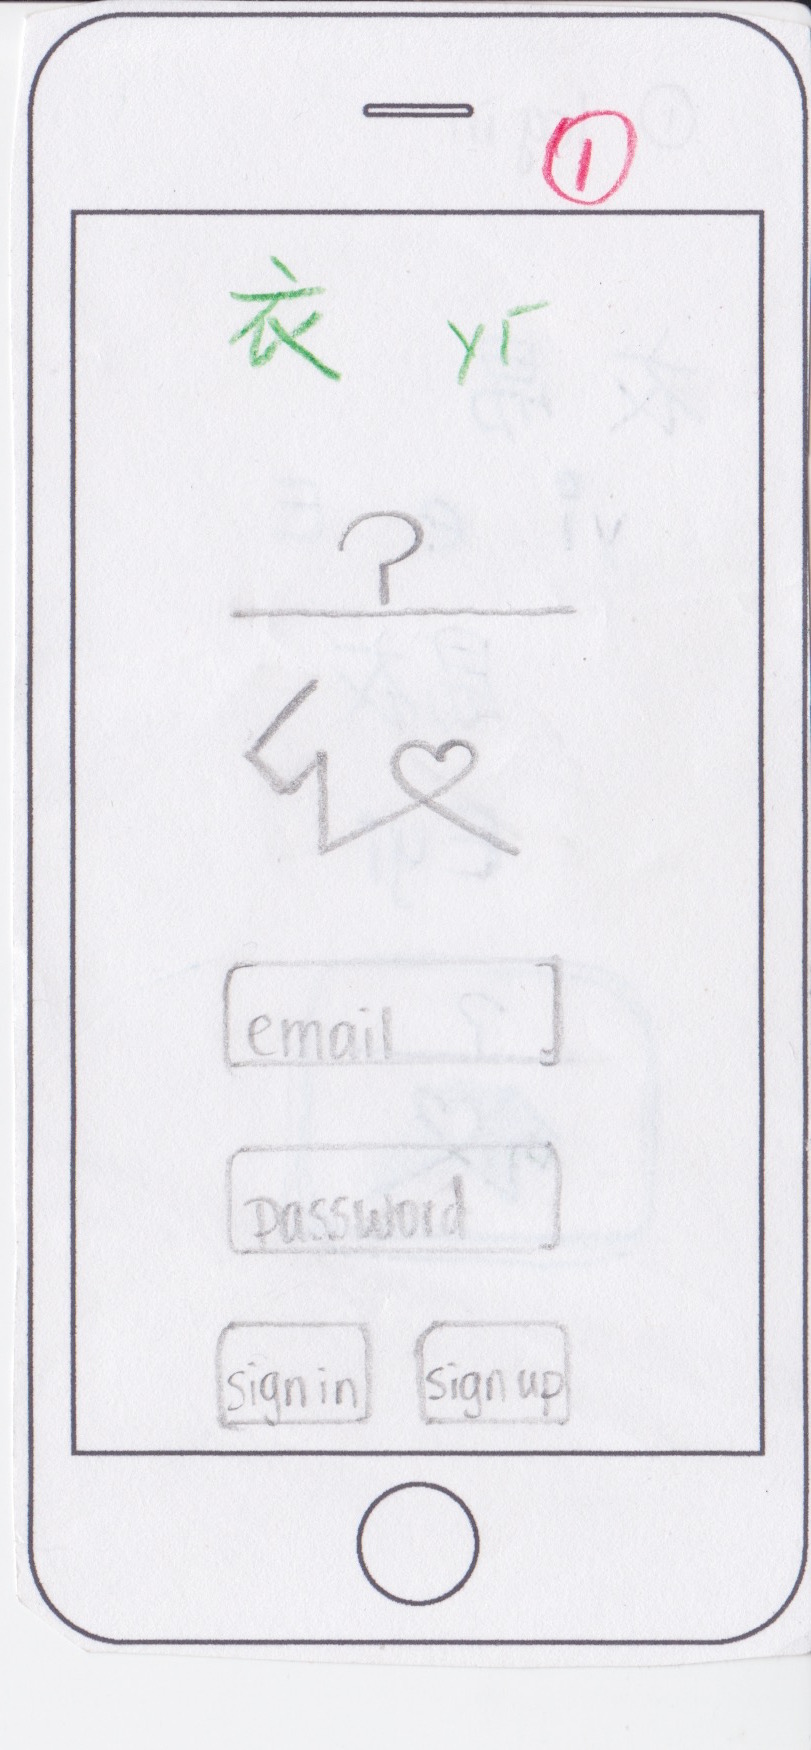 1
衣 yī
email
password
sign in sign up